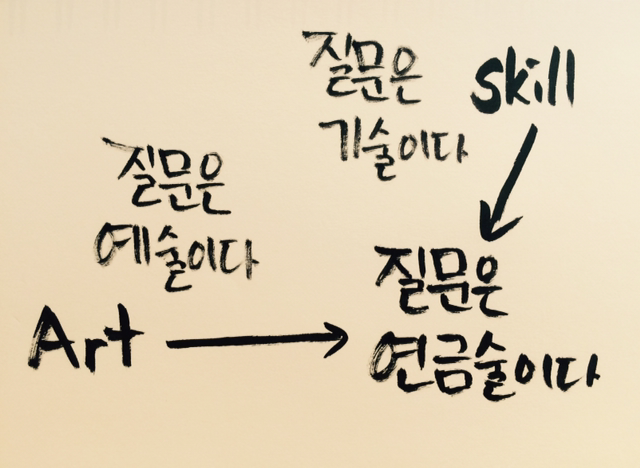 질문은
기술이다
skill
질문은
예술이다
Art
질문은
연금술이다